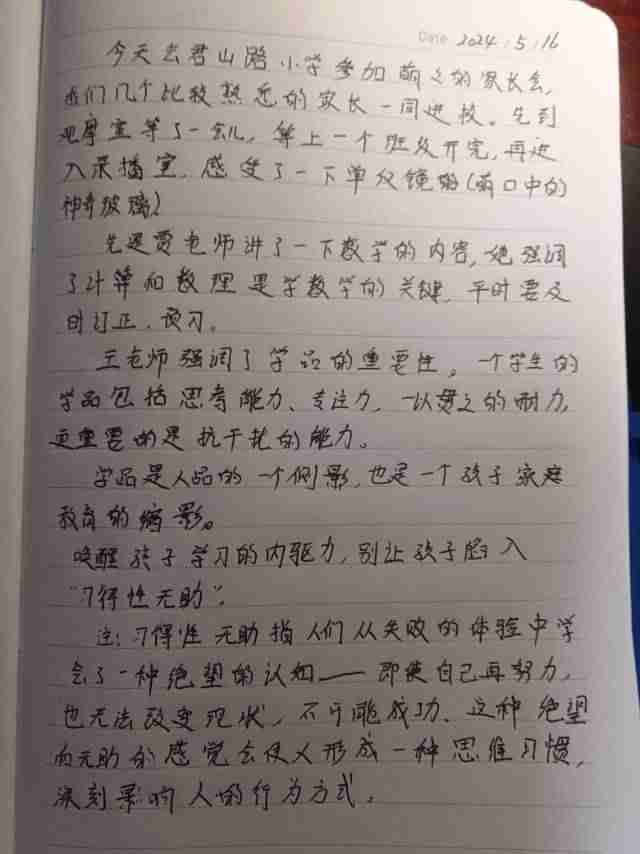 Date 2024.5.16
今天去君山路小学参加萌之的家长会,
我们几个比较熟悉的家长一同进校。先到
观摩室等了一会儿,等上一个班级开完,再进
入录播室,感受了一下单反镜的(萌口中的
神奇玻璃)
先是贾老师讲了一下数学的内容,她强调
了计算和数理是学数学的关键,平时要及
时订正、预习。
王老师强调了学品的重要性。一个学生的
学品包括思考能力、专注力,一以贯之的耐力,
更重要的是抗干扰的能力。
学品是人品的一个侧影,也是一个孩子家庭
教育的缩影。
唤醒孩子学习的内驱力,别让孩子陷入
"习得性无助"。
注:习得性无助指人们从失败的体验中学
会了一种绝望的认知——即使自己再努力,
也无法改变现状,不可能成功、这种绝望
而无助的感觉会使人形成一种思维习惯,
深刻影响人的行为方式。